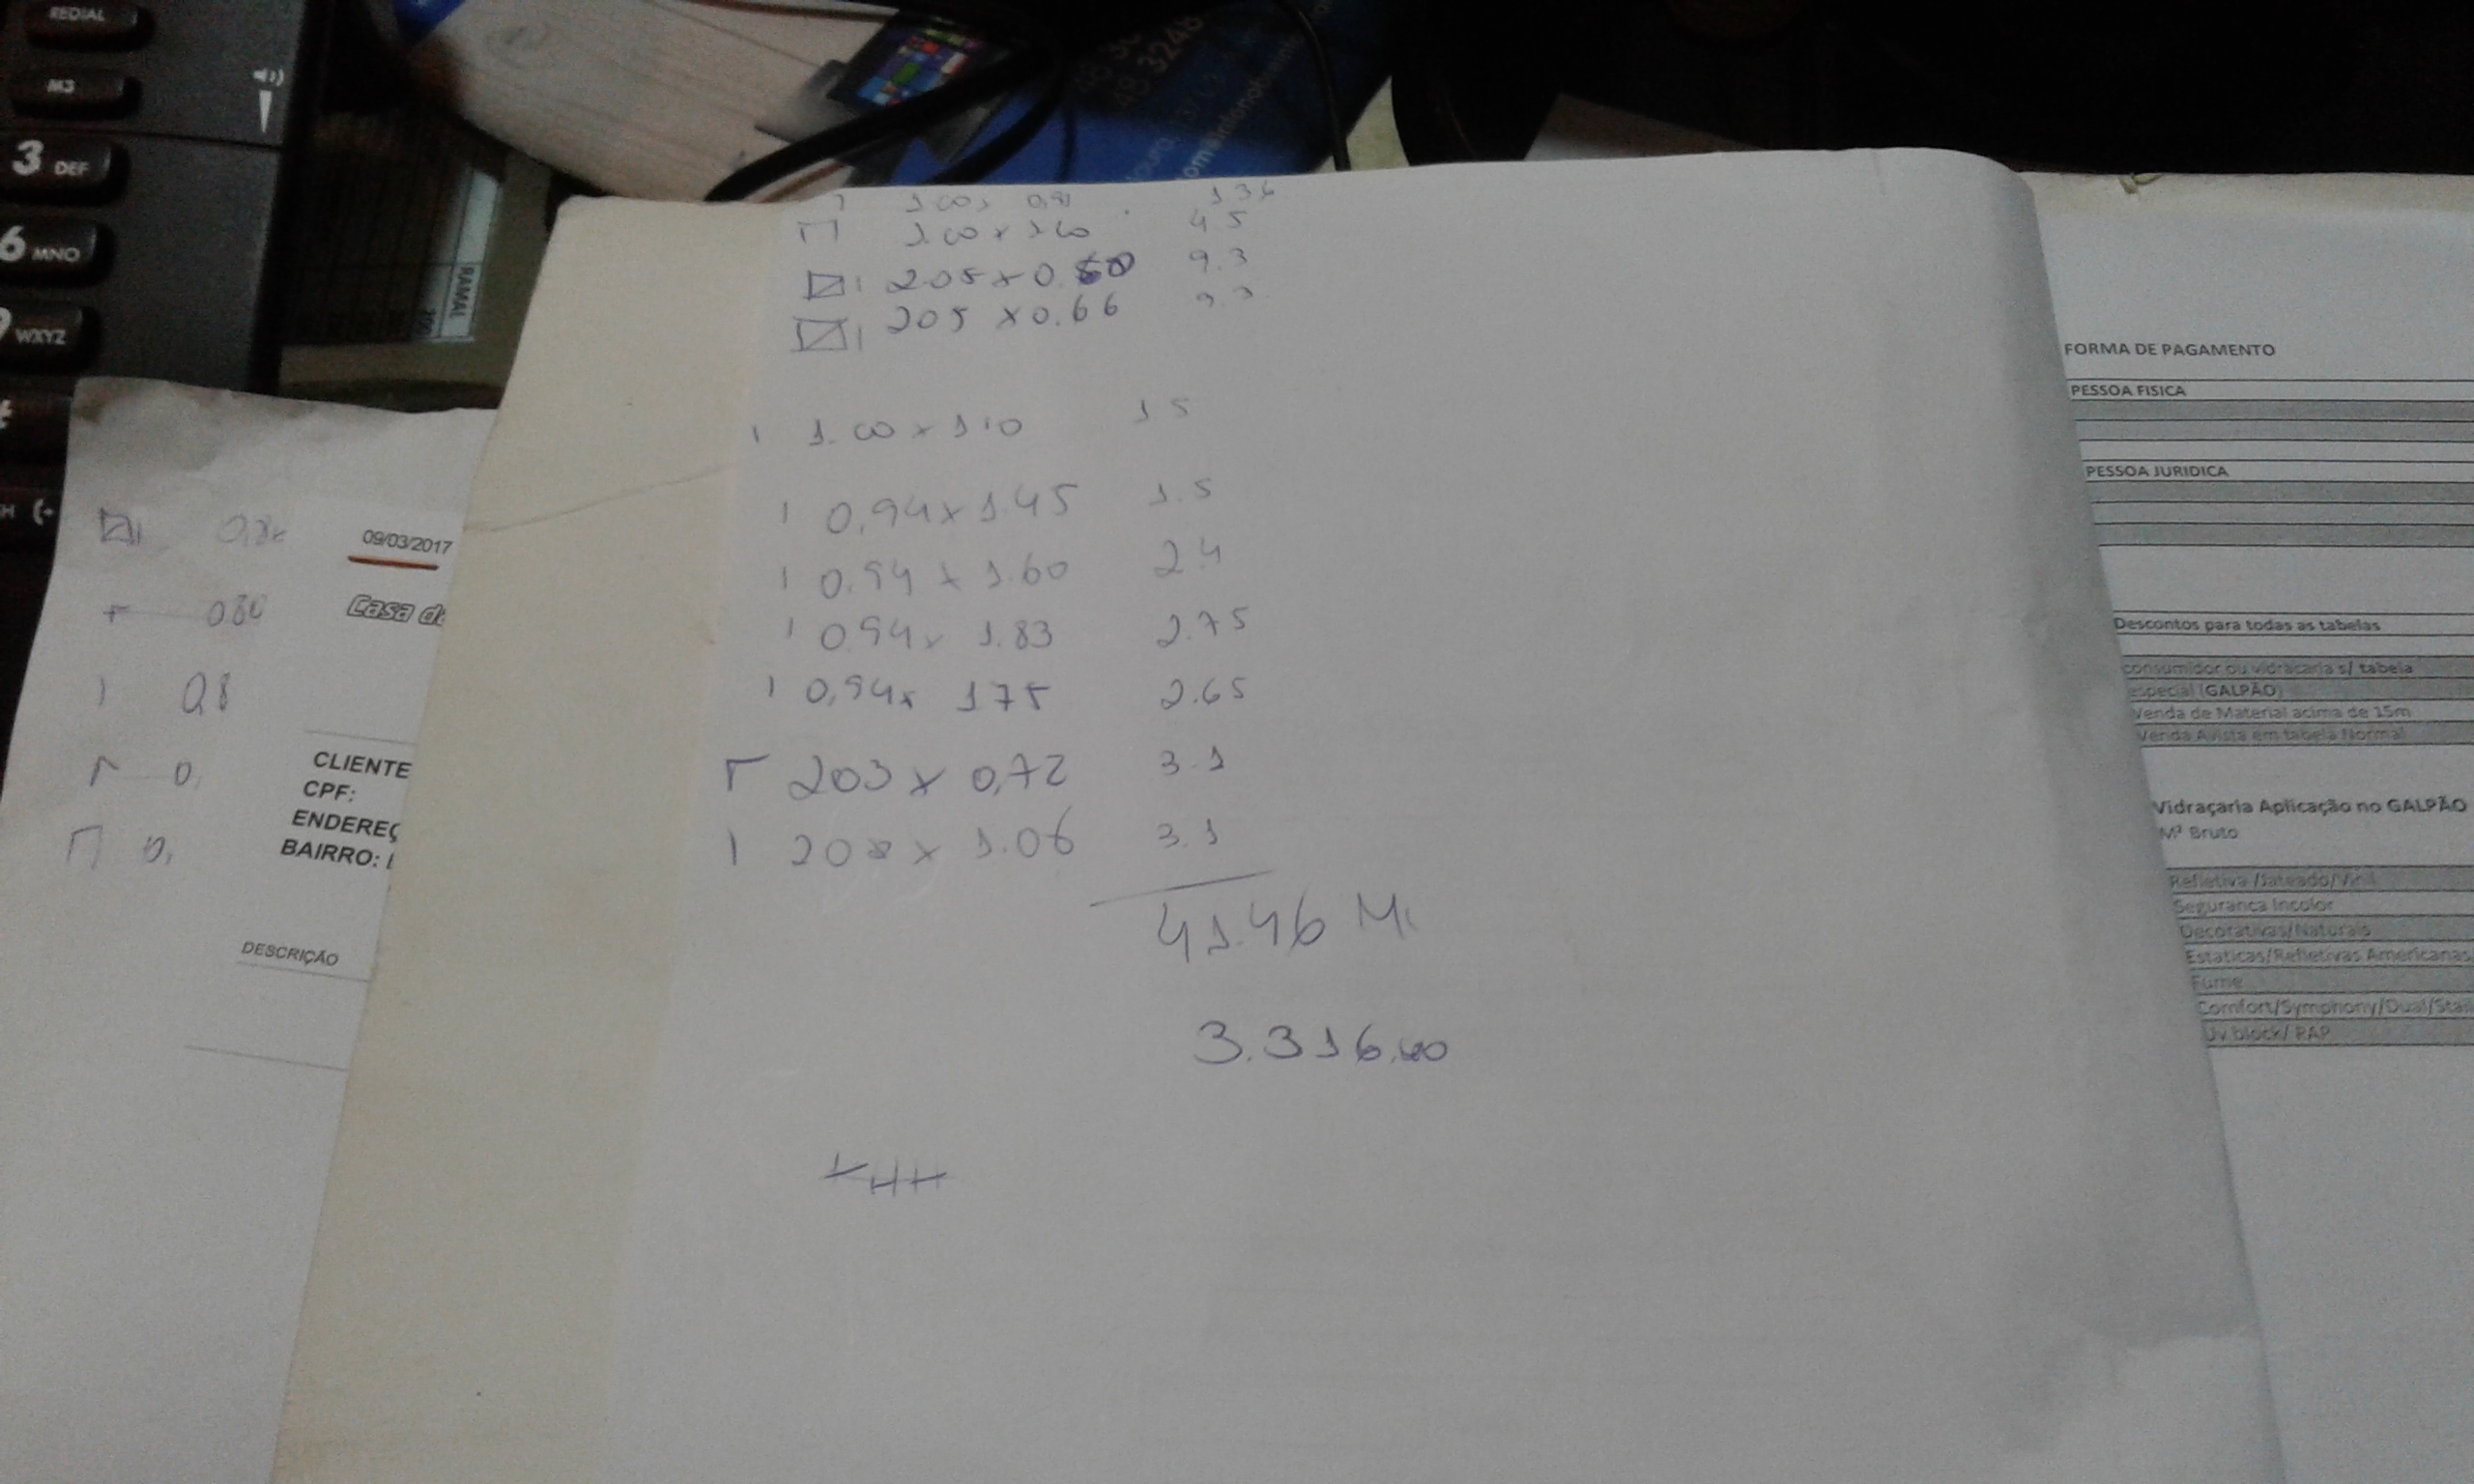 REDIAL
M3
3 DEF
6 MNO
WXYZ
RAMAL
48 3248
1.00 x 1.60 4 5
205 x 0.60 9.3
205 x 0.66
1.00 x 1.10 1 5
0,94 x 1.45 1.5
0.94 x 1.60 2.4
0.94 x 1.83 2.75
0,94 x 175 2.65
203 x 0,72 3.1
208 x 1.06 3.1
41.46 M
3.316,80
09/03/2017
Casa d
0.80
0,8
0,
0,
CLIENTE
CPF:
ENDEREÇ
BAIRRO:
DESCRIÇÃO
FORMA DE PAGAMENTO
PESSOA FISICA
PESSOA JURIDICA
Descontos para todas as tabelas
consumidor ou vidraçaria s/ tabela
especial (GALPÃO)
Venda de Material acima de 15m
Venda Avista em tabela Normal
Vidraçaria Aplicação no GALPÃO
Mª Bruto
Refletiva /Jateado/Vinil
Segurança Incolor
Decorativas/Naturais
Estaticas/Refletivas Americanas
Fume
Comfort/Symphony/Dual/Stai
Uv block/ RAP